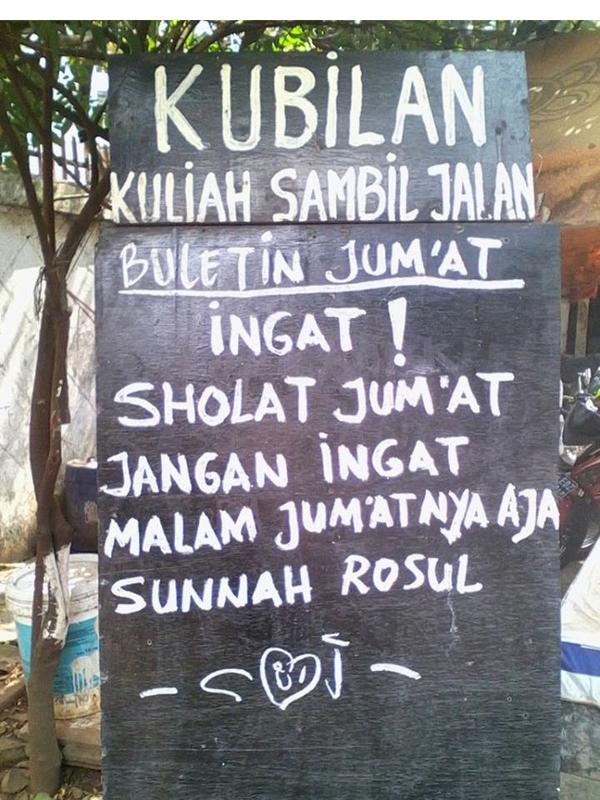 KUBILAN
KULIAH SAMBIL JALAN
BULETIN JUM'AT
INGAT !
SHOLAT JUM'AT
JANGAN INGAT
MALAM JUM'ATNYA AJA
SUNNAH ROSUL